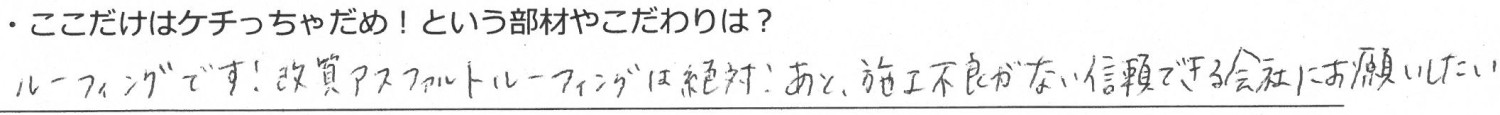 ・ここだけはケチっちゃだめ！という部材やこだわりは？
ルーフィングです！改質アスファルトルーフィングは絶対！あと、施工不良がない信頼できる会社にお願いしたい